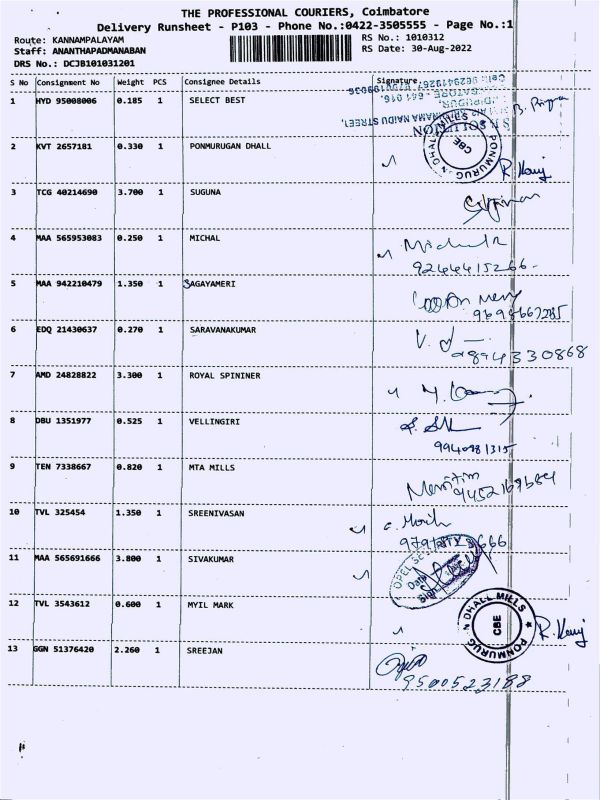 THE PROFESSIONAL COURIERS, Coimbatore
Delivery Runsheet - P103 - Phone No.:0422-3505555 - Page No.:1
Route: KANNAMPALAYAM
RS No.: 1010312
Staff: ANANTHAPADMANABAN
RS Date: 30-Aug-2022
DRS No.: DCJB101031201
S No Consignment No Weight PCS Consignee Details Signature
1 HYD 95008006 0.185 1 SELECT BEST
2 KVT 2657181 0.330 1 PONMURUGAN DHALL
PONMURUGAN DHALL MILLS
CBE
3 TCG 40214690 3.700 1 SUGUNA
4 MAA 565953083 0.250 1 MICHAL
9244415266
5 MAA 942210479 1.350 1 SAGAYAMERI
9698667285
6 EDQ 21430637 0.270 1 SARAVANAKUMAR
9894330868
7 AMD 24828822 3.300 1 ROYAL SPININER
8 DBU 1351977 0.525 1 VELLINGIRI
9940981315
9 TEN 7338667 0.820 1 MTA MILLS
10 TVL 325454 1.350 1 SREENIVASAN
11 MAA 565691666 3.800 1 SIVAKUMAR
12 TVL 3543612 0.600 1 MYIL MARK
PONMURUGAN DHALL MILLS
CBE
13 GGN 51376420 2.260 1 SREEJAN
9500523188